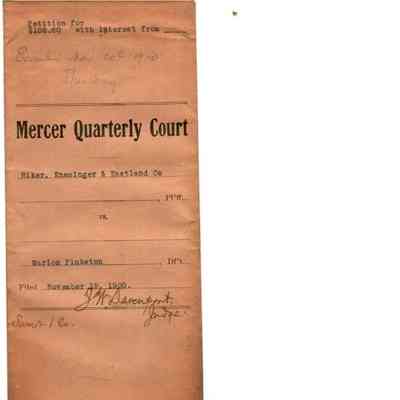 Petition for
$106.60 with interest from
Oct 1920
Mercer Quarterly Court
Riker, Ensminger & Eastland Co
, Pltf.
vs.
Marion Pinkston , Dft.
Filed November 19, 1920.
J W Davenport,
Judge.